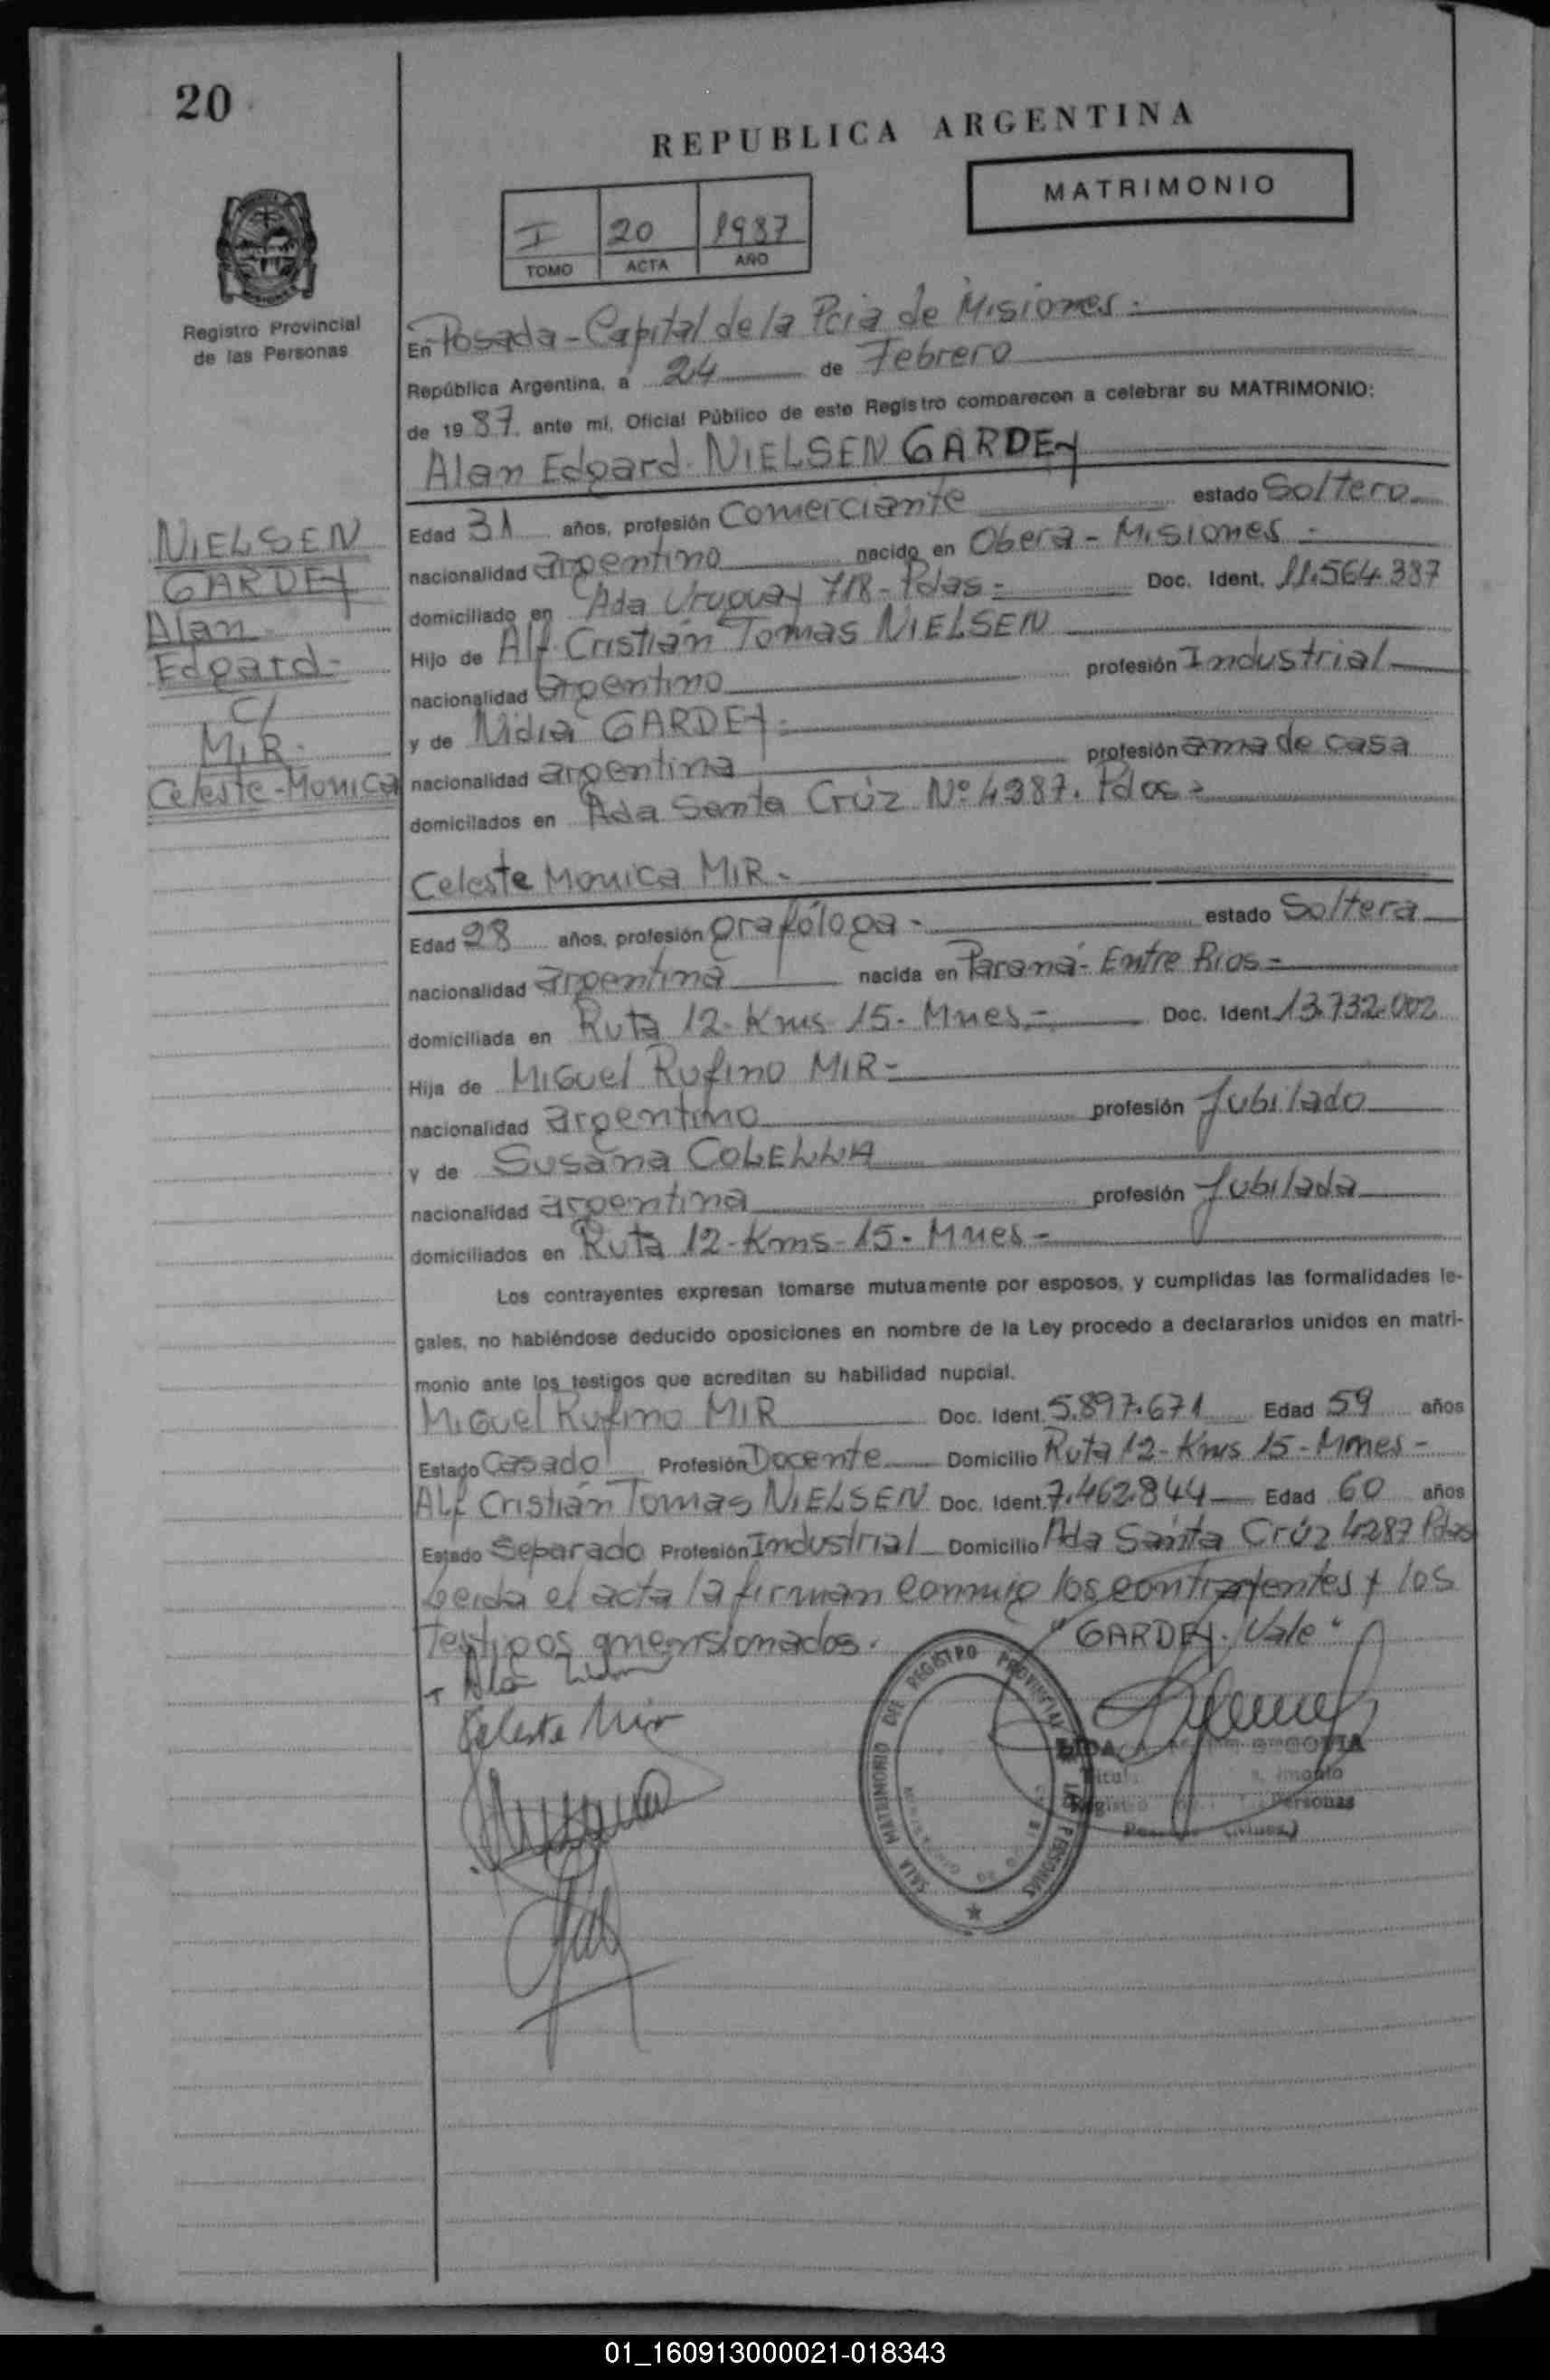 20
REPUBLICA ARGENTINA
MATRIMONIO
I 20 1987
TOMO ACTA AÑO
Registro Provincial
de las Personas
En Posada - Capital de la Pcia de Misiones.
República Argentina, a 24 de Febrero
de 1987. ante mí, Oficial Público de este Registro comparecen a celebrar su MATRIMONIO:
Alan Edgard. NIELSEN GARDEY
NIELSEN
GARDEY
Alan
Edgard-
C/
MIR.
Celeste-Monica
Edad 31 años, profesión Comerciante estado Soltero
nacionalidad argentino nacido en Obera - Misiones -
domiciliado en Ada Uruguay 718 - Pdas - Doc. Ident. 11.564.387
Hijo de Alf. Cristián Tomas NIELSEN
nacionalidad argentino profesión Industrial
y de Nidia GARDEY
nacionalidad argentina profesión ama de casa
domicilados en Ada Santa Crúz Nº 4287. Pdas -
Celeste Monica MIR.
Edad 28 años, profesión grafóloga - estado Soltera
nacionalidad argentina nacida en Paraná - Entre Rios -
domiciliada en Ruta 12 - Kms 15 - Mnes - Doc. Ident. 13.732.002
Hija de Miguel Rufino MIR -
nacionalidad argentino profesión Jubilado
y de Susana COLELLA
nacionalidad argentina profesión Jubilada
domiciliados en Ruta 12 - Kms - 15 - Mnes -
Los contrayentes expresan tomarse mutuamente por esposos, y cumplidas las formalidades le-
gales, no habiéndose deducido oposiciones en nombre de la Ley procedo a declararlos unidos en matri-
monio ante los testigos que acreditan su habilidad nupcial.
Miguel Rufino MIR Doc. Ident. 5.897.671 Edad 59 años
Estado Casado Profesión Docente Domicilio Ruta 12 - Kms 15 - Mnes -
Alf Cristián Tomas NIELSEN Doc. Ident. 7.462.844 Edad 60 años
Estado Separado Profesión Industrial Domicilio Ada Santa Crúz 4287 Pdas
Leida el acta la firman conmigo los contrayentes y los
Testigos mensionados. "GARDEY. Vale"
Celeste Mir
SALA MATRIMONIO DEL REGISTRO PROVINCIAL DE LAS PERSONAS
Personas
01_160913000021-018343